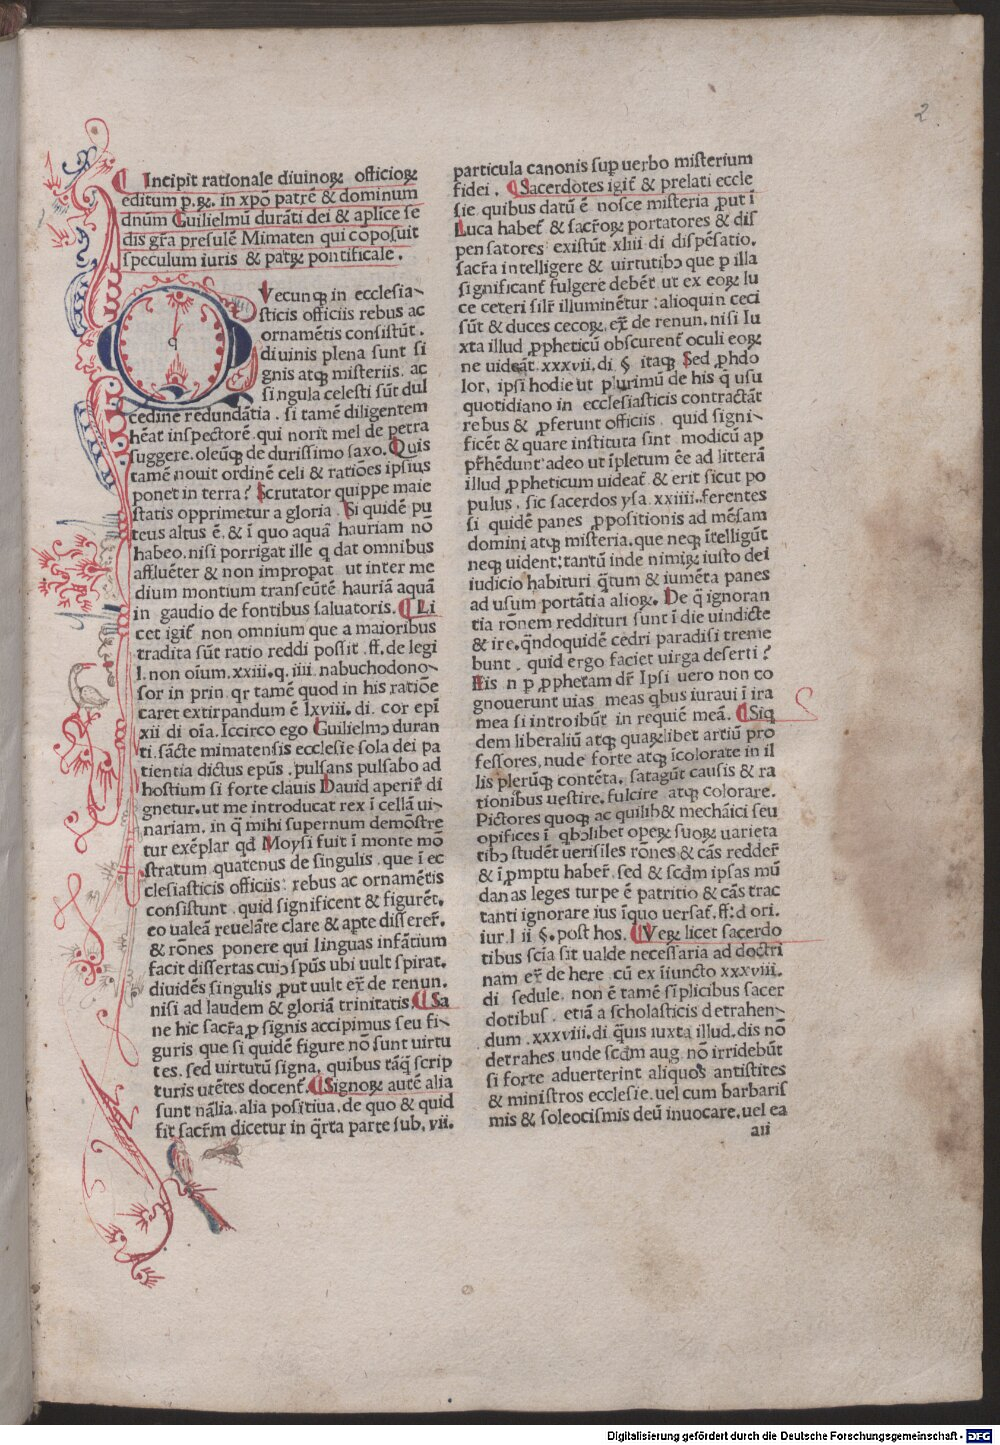 2
Incipit rationale diuinoꝝ officioꝝ
editum p. ꝝ. in xpō patrē & dominum
dnūm Guilielmū durāti dei & aplice se
dis gr̄a presulē Mimaten qui cōposuit
speculum iuris & patꝝ pontificale.
Vecunqꝫ in ecclesia-
sticis officiis rebus ac
ornamētis consistūt.
diuinis plena sunt si
gnis atqꝫ misteriis. ac
singula celesti sūt dul
cedine redundātia. si tamē diligentem
hēāt inspectorē. qui norit mel de petra
suggere. oleūqꝫ de durissimo saxo. Quis
tamē nouit ordinē celi & ratiōes ipsius
ponet in terra? Scrutator quippe maie
statis opprimetur a gloria. Si quidē pu
teus altus ē. & ī quo aquā hauriam nō
habeo. nisi porrigat ille q dat omnibus
affluēter & non impropat ut inter me
dium montium transeūtē hauriā aquā
in gaudio de fontibus saluatoris. Li
cet igit̄ non omnium que a maioribus
tradita sūt ratio reddi possit. ff. de legi
l. non oīum. xxiii. q. iiii. nabuchodono-
sor in prin. qr tamē quod in his ratiōe
caret extirpandum ē lxviii. di. cor epī
xii di oīa. Iccirco ego Guilielmꝯ duran
ti. sācte mimatensis ecclesie sola dei pa
tientia dictus epūs. pulsans pulsabo ad
hostium si forte clauis Dauid aperir̄ di
gnetur. ut me introducat rex ī cellā ui-
nariam. in q̄ mihi supernum demōstre
tur exēplar qd̄ Moysi fuit ī monte mō
stratum quatenus de singulis. que ī ec
clesiasticis officiis: rebus ac ornamētis
consistunt. quid significent & figurēt.
eo ualeā reuelāte clare & apte disserer̄.
& rōnes ponere qui linguas infātium
facit dissertas cuiꝯ spūs ubi uult spirat.
diuidēs singulis ꝓut uult ex̄ de renun.
nisi ad laudem & gloriā trinitatis. Sa
ne hic sacr̄a ꝓ signis accipimus seu fi-
guris que si quidē figure nō sunt uirtu
tes. sed uirtutū signa, quibus tāq̄ scrip
turis utētes docent̄. Signoꝝ autē alia
sunt nālia. alia positiua. de quo & quid
sit sacr̄m dicetur in q̄rta parte sub. vii.
particula canonis suꝑ uerbo misterium
fidei. Sacerdotes igit̄ & prelati eccle
sie quibus datū ē nosce misteria ꝓut ī
Luca habet̄ & sacr̄oꝝ portatores & dis
pensatores existūt xliii di dispēsatio.
sacr̄a intelligere & uirtutibꝯ que ꝑ illa
significant̄ fulgere debēt ut ex eoꝝ lu
ce ceteri silr̄ illuminētur: alioquin ceci
sūt & duces cecoꝝ. ex̄ de renun. nisi Iu
xta illud ꝓpheticū obscurent̄ oculi eoꝝ
ne uideāt. xxxvii. di § itaqꝫ Sed ꝓhdo
lor, ipsi hodie ut plurimū de his q̄ usu
quotidiano in ecclesiasticis contractāt
rebus & ꝓferunt officiis quid signi-
ficēt & quare instituta sint modicū ap
pr̄hēdunt: adeo ut īpletum ēe ad litterā
illud ꝓpheticum uideat̄ & erit sicut po
pulus, sic sacerdos ysa. xxiiii. ferentes
si quidē panes ꝓpositionis ad mēsam
domini atqꝫ misteria. que neqꝫ ītelligūt
neqꝫ uident: tantū inde nimiꝝ iusto dei
iudicio habituri q̄tum & iumēta panes
ad usum portātia alioꝝ. De q̄ ignoran
tia rōnem reddituri sunt ī die uindicte
& ire. q̄ndoquidē cedri paradisi treme
bunt. quid ergo faciet uirga deserti?
His n p ꝓphetam dr̄ Ipsi uero non co
gnouerunt uias meas qbus iuraui ī ira
mea si introibūt in requiē meā. Siq
dem liberaliū atqꝫ quaꝝlibet artiū pro
fessores, nude forte atqꝫ īcolorate in il
lis plerūqꝫ contēta, satagūt causis & ra
tionibus uestire. fulcire atqꝫ colorare.
Pictores quoqꝫ ac quilib& mechāici seu
opifices ī qbꝯlibet opeꝝ suoꝝ uarieta
tibꝯ studēt uerisiles rōnes & cās redder̄
& īꝓmptu haber̄. sed & scd̄m ipsas mū
danas leges turpe ē patritio & cās trac
tanti ignorare ius īquo uersat̄. ff: d ori.
iur. l ii §. post hos. Veꝝ licet sacerdo
tibus scia sit ualde necessaria ad doctri
nam ex̄ de here cū ex īiuncto xxxviii.
di sedule, non ē tamē sīplicibus sacer
dotibus, etiā a scholasticis detrahen-
dum. xxxviii. di q̄uis iuxta illud. dis nō
detrahes unde scd̄m aug. nō irridebūt
si forte aduerterint aliquos antistites
& ministros ecclesie. uel cum barbaris
mis & soleocismis deū inuocare. uel ea
aii
Digitalisierung gefördert durch die Deutsche Forschungsgemeinschaft - DFG